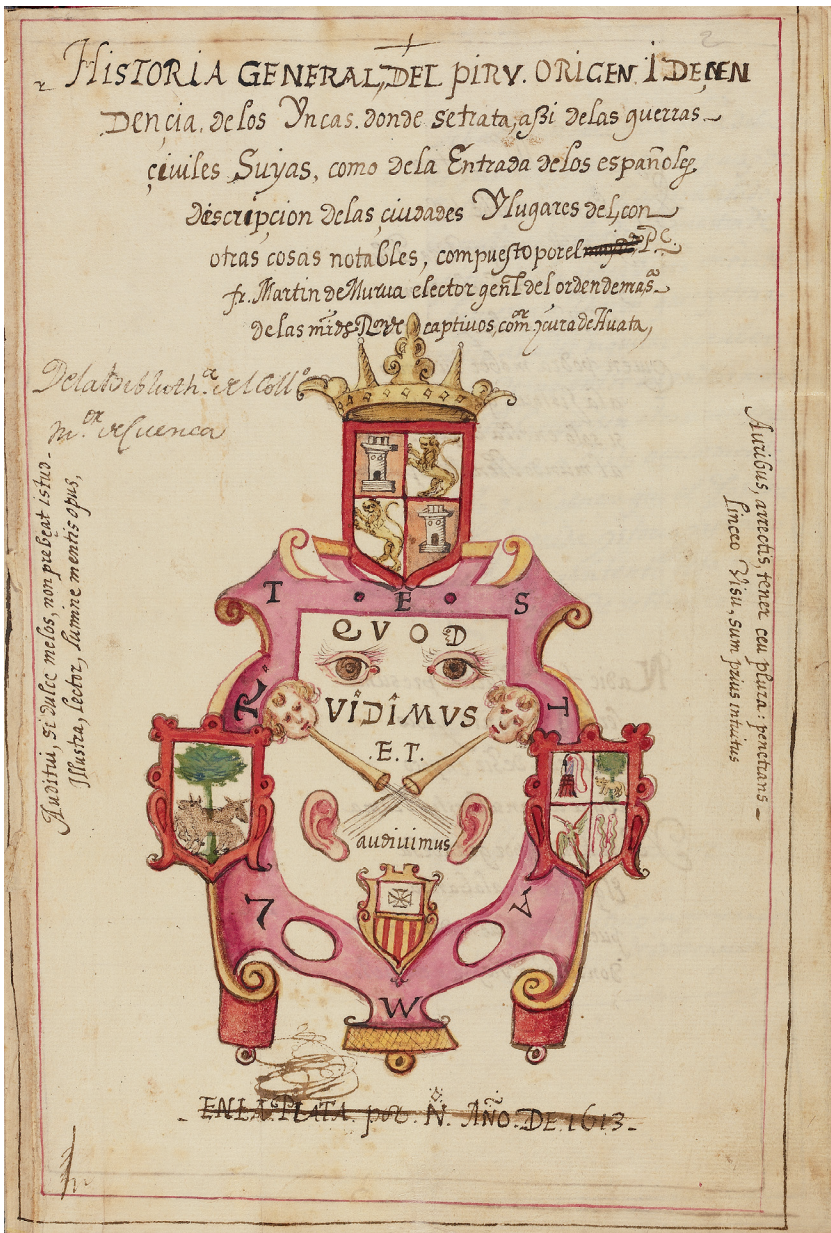 2
HISTORIA GENERAL, DEL PIRV. ORIGEN. I DEÇEN
DENÇIA. de los Yncas. donde se trata, aßi de las guerras
çiviles Suyas, como de la Entrada de los españoles,
descripcion de las çiudades Y lugares del, con
otras cosas notables, compuesto por el Pe.
fr. Martin de Murua elector genl. del orden de nra. sa.
de las mrds. captivos, comor. y cura de Huata,
De la Bibliotha. del Collo.
mor. de Cuenca
Auditui, si dulce melos, non prebeat istud
Illustra, lector, lumine mentis opus,
Auribus, arrectis, tener ceu plura: penetrans
Linceo Visu, sum prius intuitus
T E S
QVOD
R
VIDIMVS
T
.E.T.
audiuimus
L
A
W
EN LA PLATA. por. N. AÑO. DE. 1613